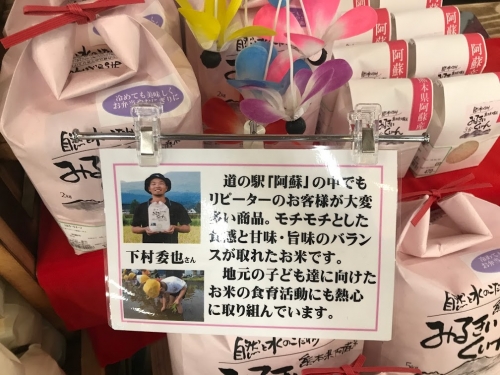 冷めても美味しく
お弁当のおにぎりに
自然と水のこだわり
みるきぃ
2kg
阿蘇
阿蘇
本県阿蘇
道の駅「阿蘇」の中でも
リピーターのお客様が大変
多い商品。モチモチとした
食感と甘味・旨味のバラン
スが取れたお米です。
地元の子ども達に向けた
お米の食育活動にも熱心
に取り組んでいます。
下村委也さん
自然と水のこだわり
熊本県阿蘇
みるきぃ
くぃーん
自然と水のこだわり
みるきぃ
くぃーん